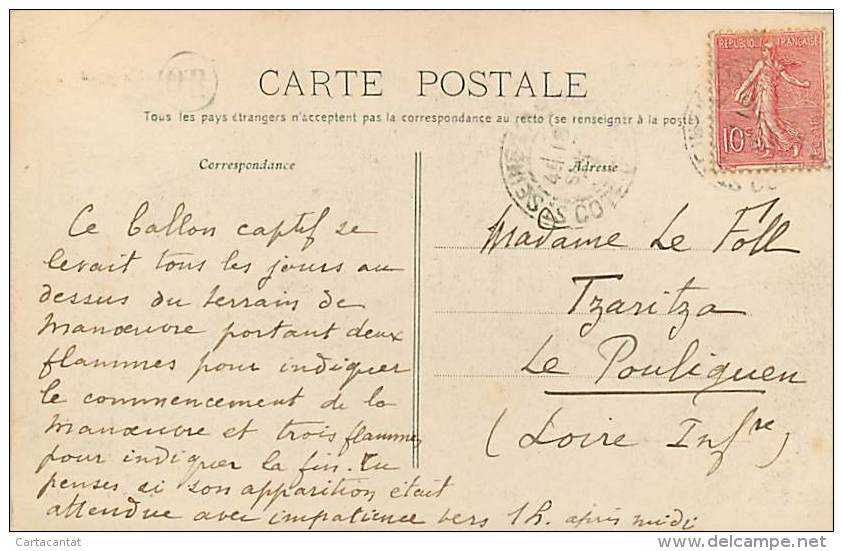 RÉPUBLIQUE FRANÇAISE
10c
CARTE POSTALE
Tous les pays étrangers n'acceptent pas la correspondance au recto (se renseigner à la poste)
Correspondance
Ce ballon captif se
levait tous les jours au
dessus du terrain de
manœuvre portant deux
flammes pour indiquer
le commencement de la
manœuvre et trois flammes
pour indiquer la fin. Tu
penses si son apparition était
attendue avec impatience vers 1h. après midi
Adresse
Madame Le Foll
Tzaritza
Le Pouliguen
(Loire Infre)
Cartacantat
delcampe.net